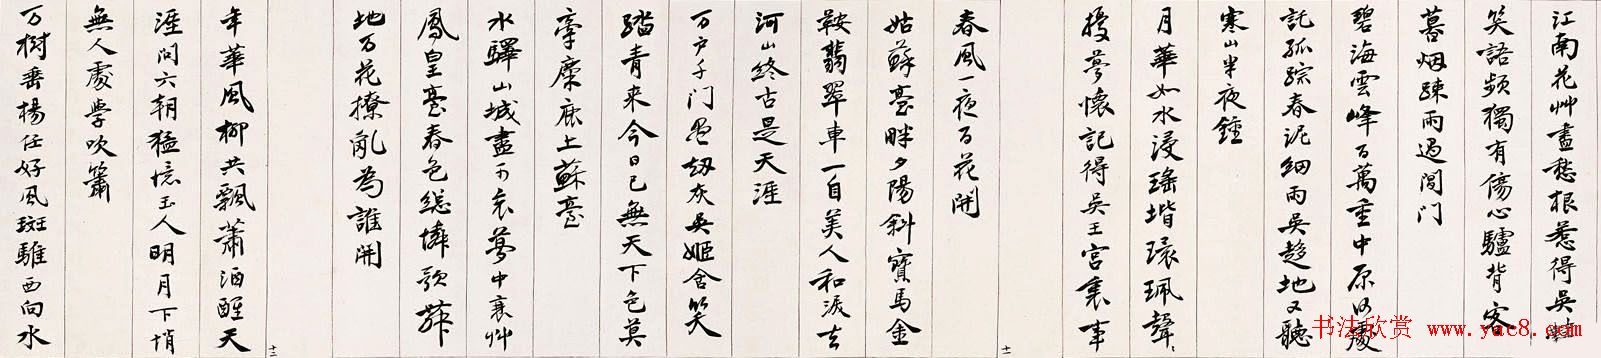 江南花艸盡愁根惹得吳娃
笑語頻獨有傷心驢背客
暮烟踈雨過閶門
碧海雲峰百萬重中原何處
託孤踪春泥細雨吳趨地又聽
寒山半夜鐘
月華如水浸瑤堦環珮聲々
擾夢懷記得吳王宮裏事
春風一夜百花開
十一
姑蘇臺畔夕陽斜寶馬金
鞍翡翠車一自美人和淚去
河山終古是天涯
万戶千門盡劫灰吳姬含笑
踏青来今日已無天下色莫
牽麋鹿上蘇臺
水驛山城盡可哀夢中衰艸
鳳皇臺春色總憐歌舞
地万花撩亂為誰開
十二
年華風柳共飄蕭酒醒天
涯問六朝猛憶玉人明月下悄
無人處學吹簫
万樹垂楊任好風斑騅西向水
书法欣赏 www.yac8.com